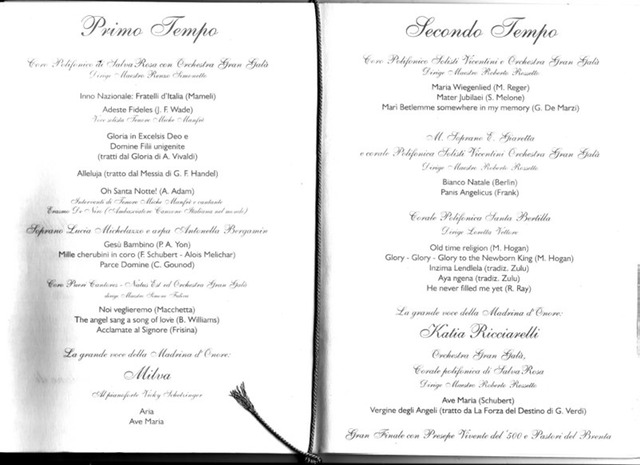 Primo Tempo
Coro Polifonico di Salva Rosa con Orchestra Gran Galà
Dirige Maestro Renzo Simonetto
Inno Nazionale: Fratelli d'Italia (Mameli)
Adeste Fideles (J. F. Wade)
Voce solista Tenore Miche Manfrè
Gloria in Excelsis Deo e
Domine Filii unigenite
(tratti dal Gloria di A. Vivaldi)
Alleluja (tratto dal Messia di G. F. Handel)
Oh Santa Notte! (A. Adam)
Interventi di Tenore Miche Manfrè e cantante
Erasmo De Nini (Ambasciatore Canzone Italiana nel mondo)
Soprano Lucia Michelazzo e arpa Antonella Bergamin
Gesù Bambino (P. A. Yon)
Mille cherubini in coro (F. Schubert - Alois Melichar)
Parce Domine (C. Gounod)
Coro Pueri Cantores - Natus Est ed Orchestra Gran Galà
dirige Maestro Simone
Noi veglieremo (Macchetta)
The angel sang a song of love (B. Williams)
Acclamate al Signore (Frisina)
La grande voce della Madrina d'Onore:
Milva
Al pianoforte Vicky Schätzinger
Aria
Ave Maria
Secondo Tempo
Coro Polifonico Solisti Vicentini e Orchestra Gran Galà
Dirige Maestro Roberto Rossetto
Maria Wiegenlied (M. Reger)
Mater Jubilaei (S. Melone)
Mari Betlemme somewhere in my memory (G. De Marzi)
M. Soprano E. Gparetta
e corale Polifonica Solisti Vicentini Orchestra Gran Galà
Dirige Maestro Roberto Rossetto
Bianco Natale (Berlin)
Panis Angelicus (Frank)
Corale Polifonica Santa Bertilla
Dirige Loretta Vettore
Old time religion (M. Hogan)
Glory - Glory - Glory to the Newborn King (M. Hogan)
Inzima Lendlela (tradiz. Zulu)
Aya ngena (tradiz. Zulu)
He never filled me yet (R. Ray)
La grande voce della Madrina d'Onore:
Katia Ricciarelli
Orchestra Gran Galà,
Corale polifonica di Salva Rosa
Dirige Maestro Roberto Rossetto
Ave Maria (Schubert)
Vergine degli Angeli (tratto da La Forza del Destino di G. Verdi)
Gran Finale con Presepe Vivente del '500 e Pastori del Brenta